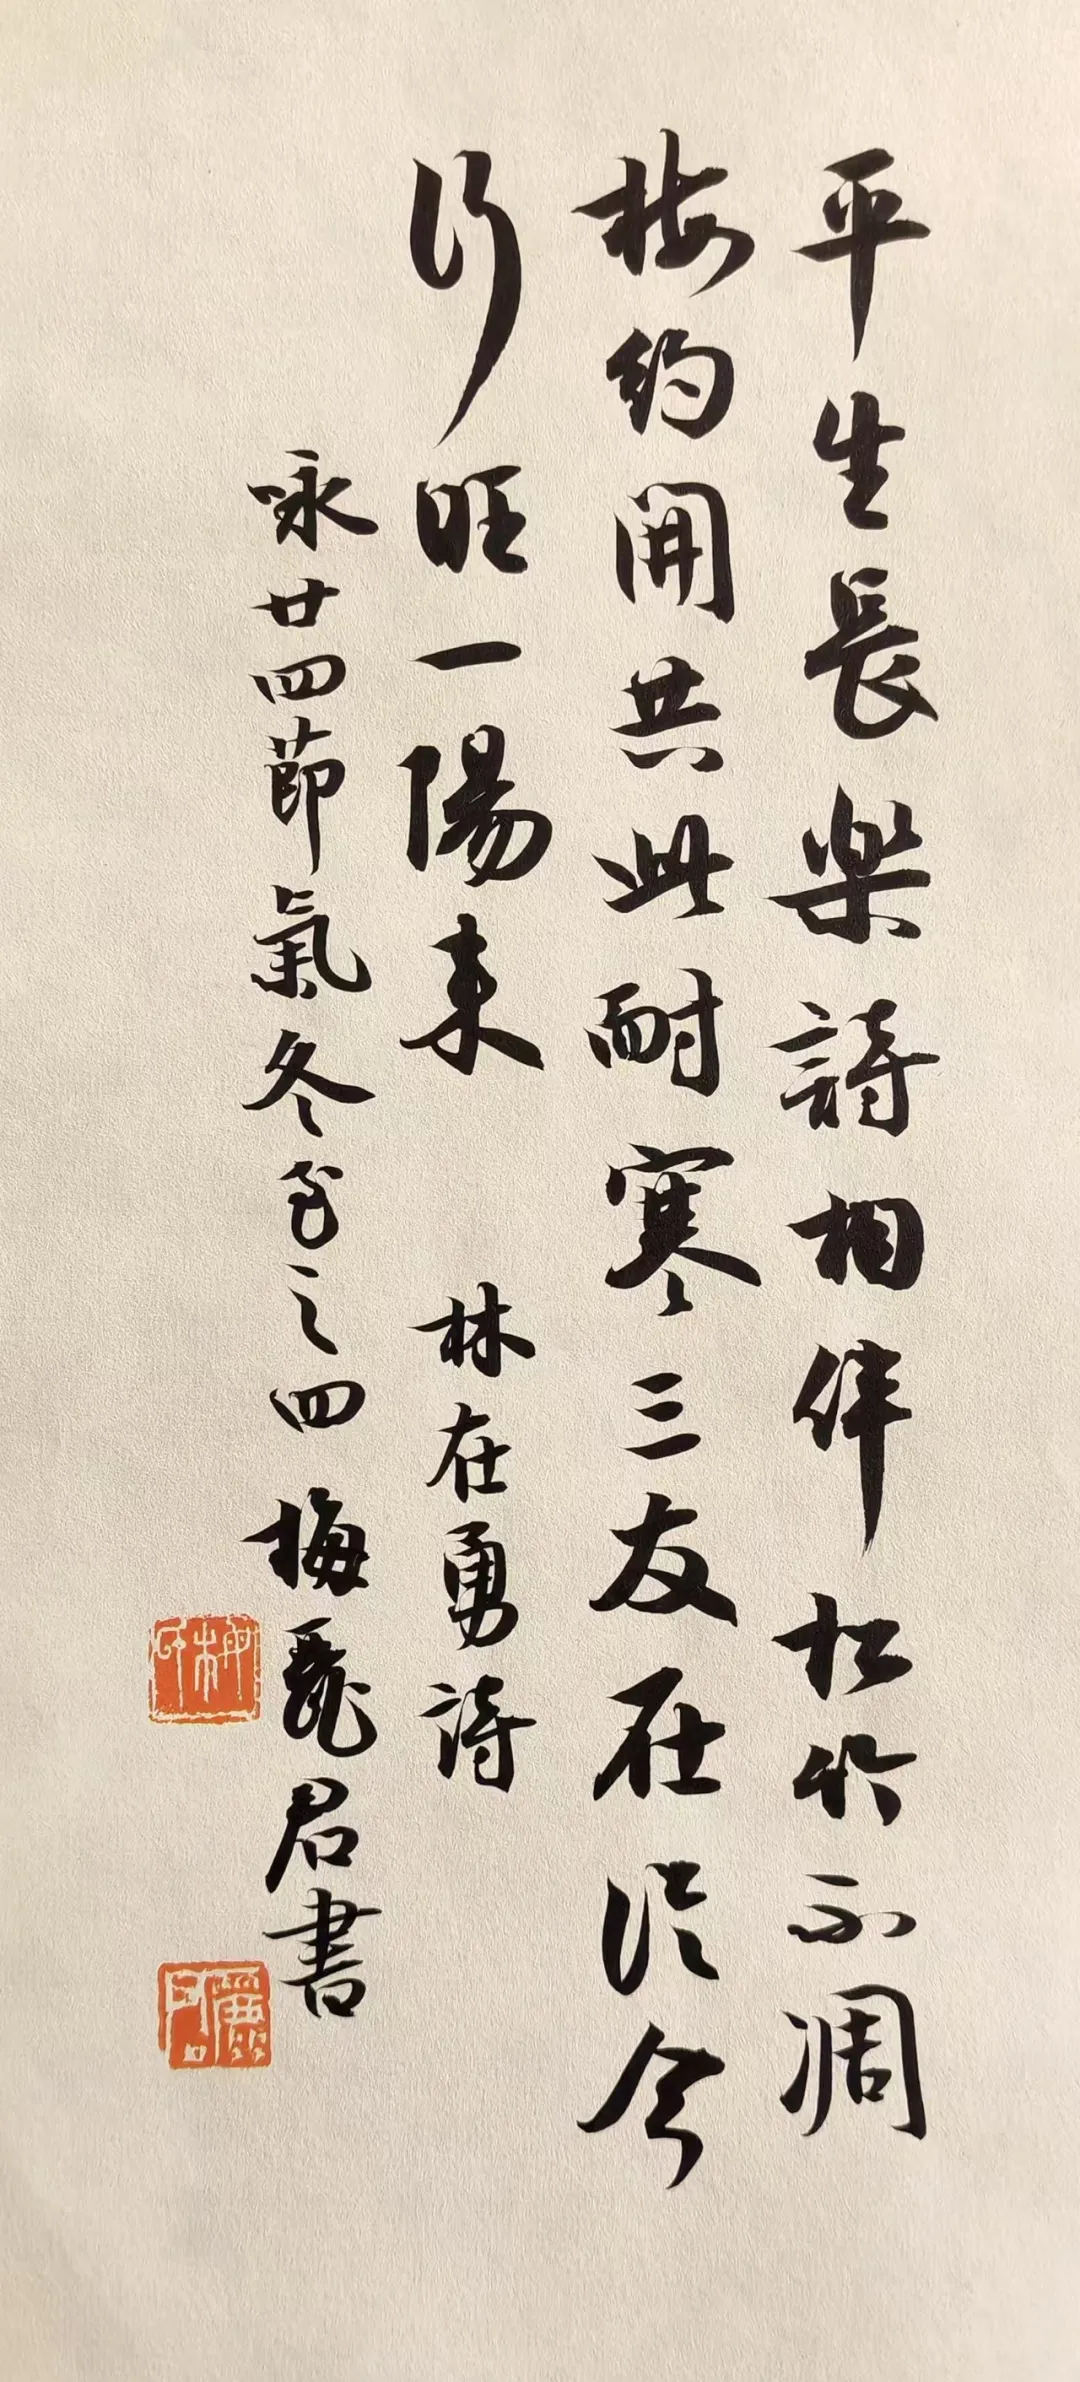 平生長樂詩相伴松竹不凋
梅約開共此耐寒三友在從今
行旺一陽来 林在勇詩
咏廿四節氣冬至之四 梅麗君書
梅印
麗君